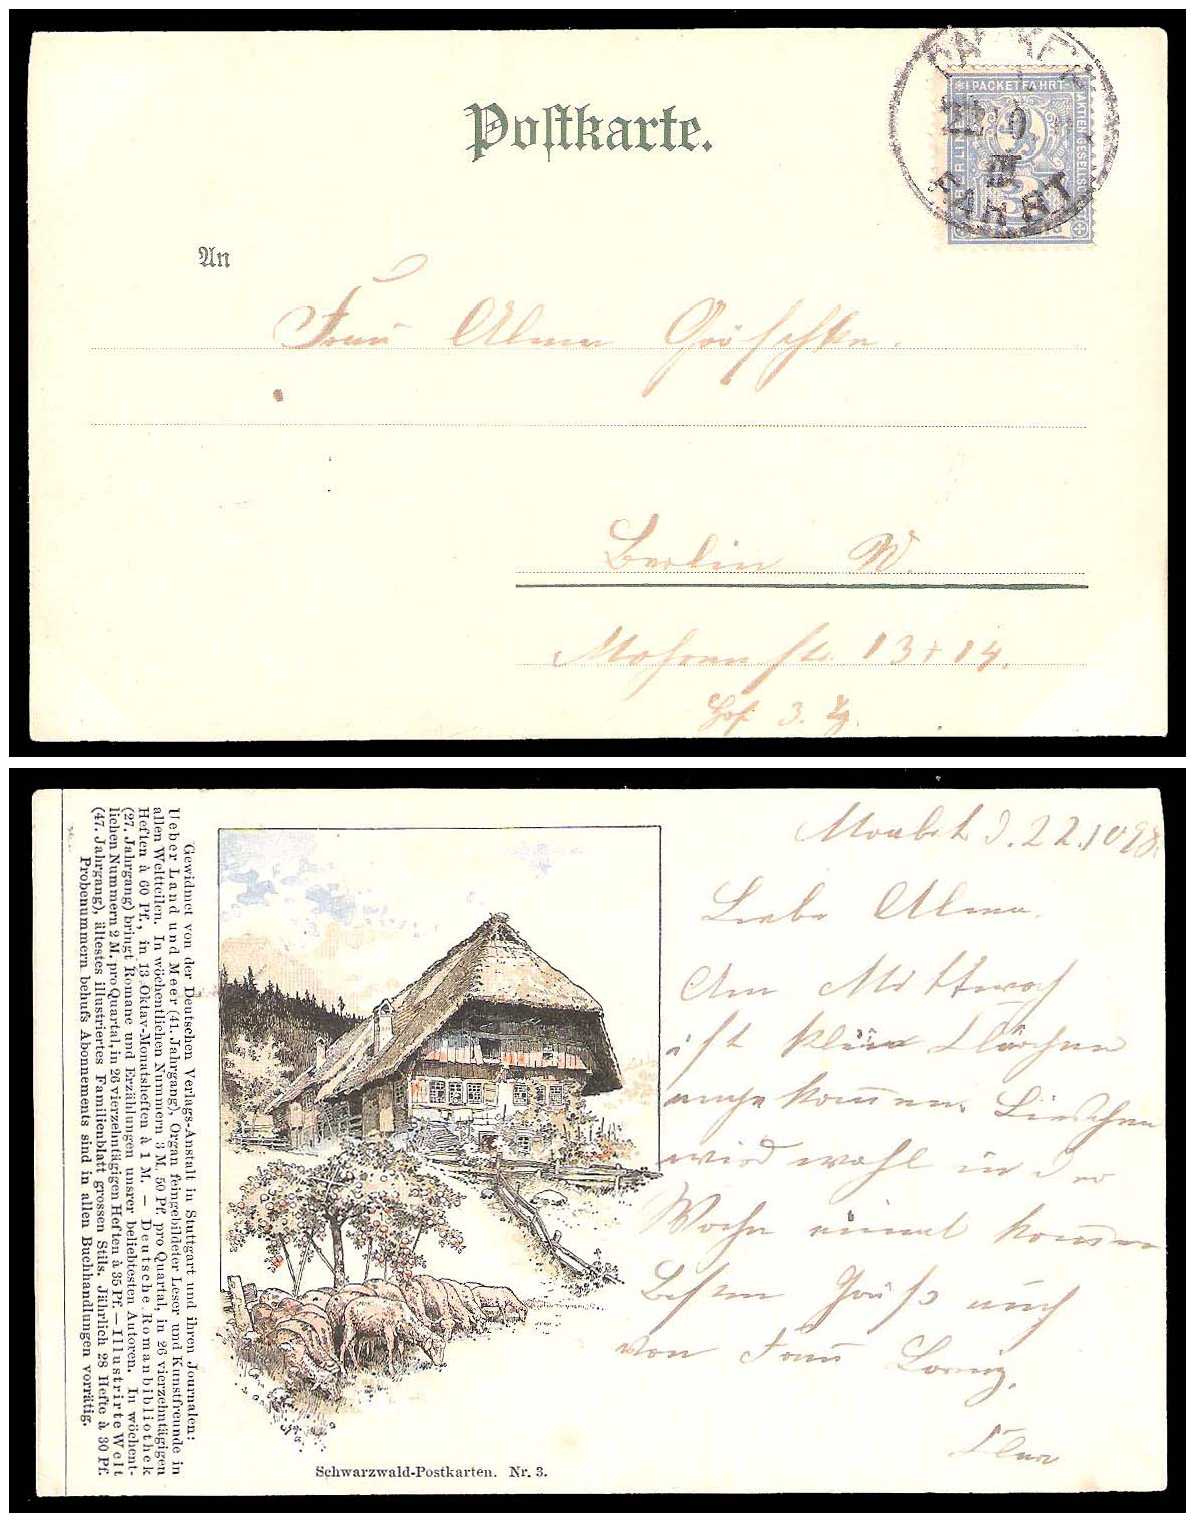 Postkarte.
PACKETFAHRT-
BERLINER
AKTIEN GESELLSCH
3
PACKET
22 10
III
FAHRT
An
Frau Alma Gröschke.
Berlin W.
Mohrenstr. 13 + 14.
Hof 3. Tg.
Gewidmet von der Deutschen Verlags-Anstalt in Stuttgart und ihren Journalen:
Ueber Land und Meer (41. Jahrgang), Organ feingebildeter Leser und Kunstfreunde in
allen Weltteilen. In wöchentlichen Nummern 3 M. 50 Pf. pro Quartal, in 26 vierzehntägigen
Heften à 60 Pf., in 13 Oktav-Monatsheften à 1 M. — Deutsche Romanbibliothek
(27. Jahrgang) bringt Romane und Erzählungen unsrer beliebtesten Autoren. In wöchent-
lichen Nummern 2 M. pro Quartal, in 26 vierzehntägigen Heften à 35 Pf. — Illustrirte Welt
(47. Jahrgang), ältestes illustriertes Familienblatt grossen Stils. Jährlich 28 Hefte à 30 Pf.
Probenummern behufs Abonnements sind in allen Buchhandlungen vorrätig.
Schwarzwald-Postkarten. Nr. 3.
Moabit d. 22.10 98.
Liebe Alma.
Am Mittwoch
ist klein Klärchen
angekommen. Lieschen
wird wohl in der
Woche einmal kommen
Besten Gruß auch
von Frau